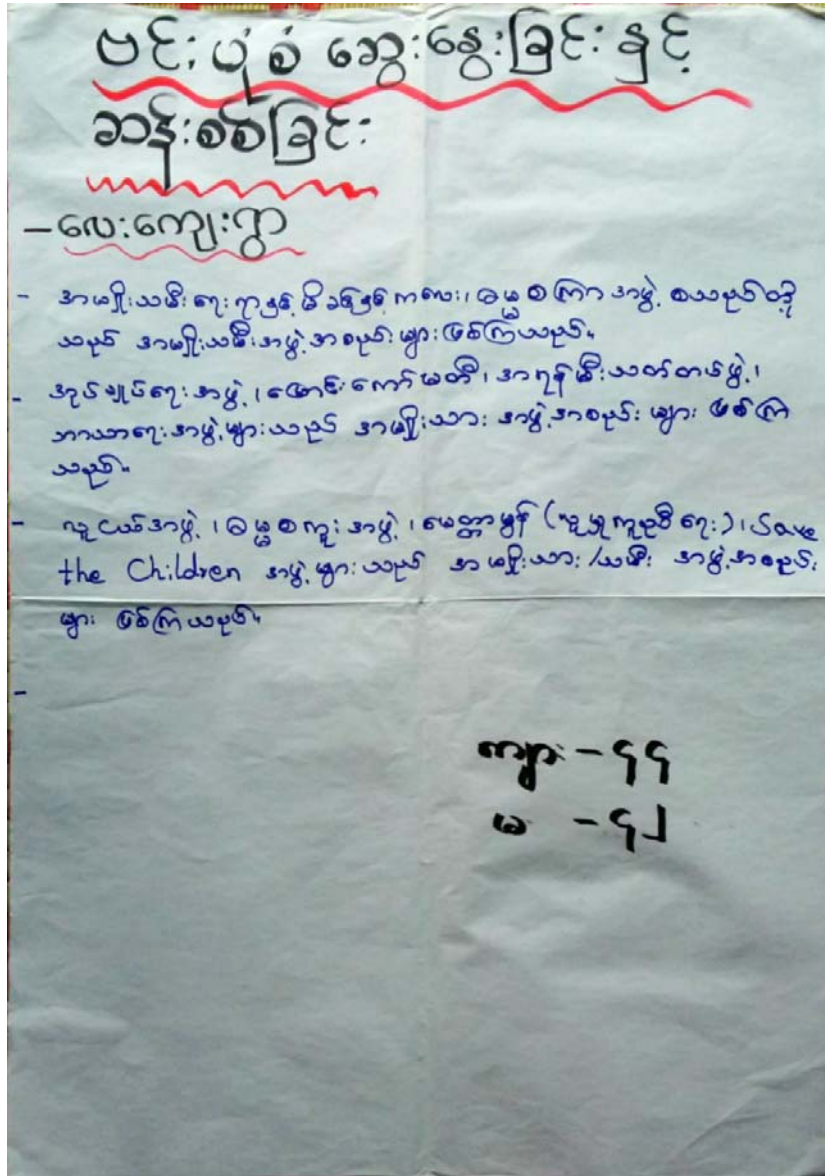 ဗင်းပုံစံ ဆွေးနွေးခြင်းနှင့်
ဆန်းစစ်ခြင်း
– လေးကျေးရွာ
- အမျိုးသမီးရေးရာနှင့် မိခင်နှင့်ကလေး၊ ဓမ္မစကြာအဖွဲ့ စသည်တို့
သည် အမျိုးသမီးအဖွဲ့အစည်းများဖြစ်ကြသည်။
- အုပ်ချုပ်ရေးအဖွဲ့၊ ကျောင်းကော်မတီ၊ အရန်မီးသတ်တပ်ဖွဲ့၊
ဘာသာရေးအဖွဲ့များသည် အမျိုးသား အဖွဲ့အစည်း များ ဖြစ်ကြ
သည်။
- လူငယ်အဖွဲ့၊ ဓမ္မစကူးအဖွဲ့၊ မေတ္တာမွန် (လူမှုကူညီရေး)၊ Save
the Children အဖွဲ့များသည် အမျိုးသား/သမီး အဖွဲ့အစည်း
များ ဖြစ်ကြသည်။
-
ကျား – ၄၄
မ – ၄၂